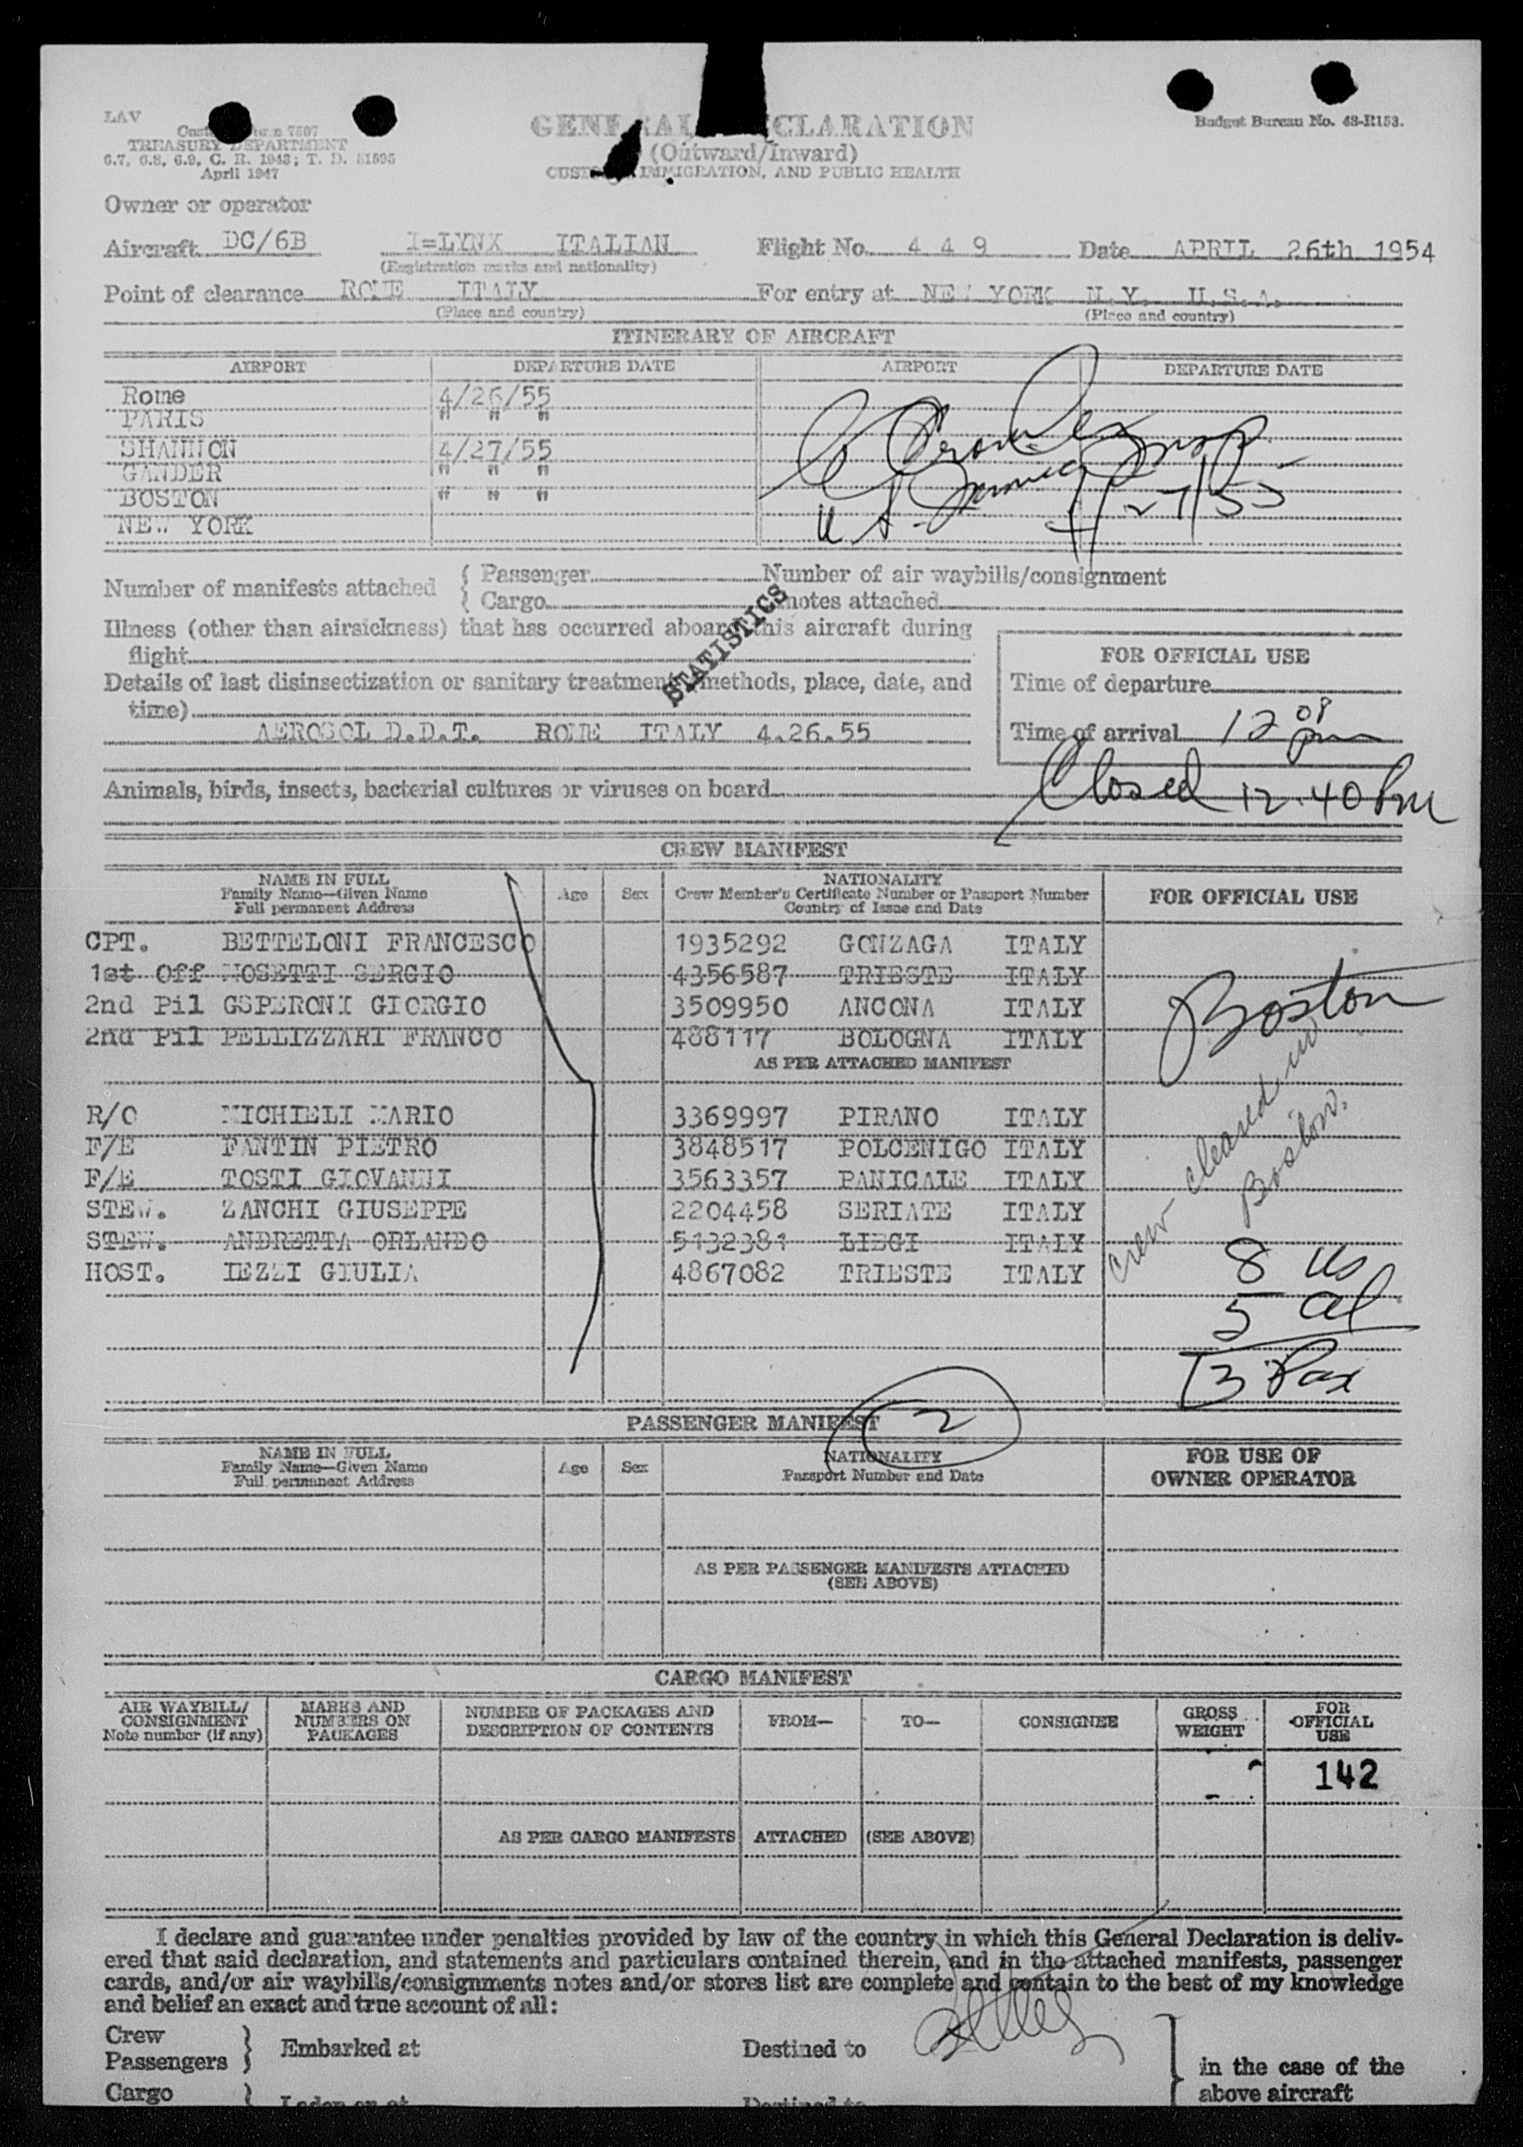 LAV
TREASURY DEPARTMENT
6.7, 6.8, 6.9, C. R. 1943; T. D. 51595
April 1947
GENERAL DECLARATION
(Outward/Inward)
CUSTOMS, IMMIGRATION, AND PUBLIC HEALTH
Budget Bureau No. 48-R153.
Owner or operator
Aircraft DC/6B I=LYNX ITALIAN Flight No. 449 Date APRIL 26th 1954
(Registration marks and nationality)
Point of clearance ROME ITALY For entry at NEW YORK N.Y. U.S.A.
(Place and country) (Place and country)
ITINERARY OF AIRCRAFT
AIRPORT DEPARTURE DATE AIRPORT DEPARTURE DATE
Rome 4/26/55
PARIS " " "
SHANNON 4/27/55
GANDER " " "
BOSTON " " "
NEW YORK
U.S. Immig Insp
4/27/55
Number of manifests attached { Passenger Number of air waybills/consignment
{ Cargo notes attached
STATISTICS
Illness (other than airsickness) that has occurred aboard this aircraft during
flight
Details of last disinsectization or sanitary treatment (methods, place, date, and
time)
AEROSOL D.D.T. ROME ITALY 4.26.55
FOR OFFICIAL USE
Time of departure
Time of arrival 12 08 pm
Closed 12.40 Pm
Animals, birds, insects, bacterial cultures or viruses on board
CREW MANIFEST
NAME IN FULL
Family Name—Given Name
Full permanent Address
Age Sex
NATIONALITY
Crew Member's Certificate Number or Passport Number
Country of Issue and Date
FOR OFFICIAL USE
CPT. BETTELONI FRANCESCO 1935292 GONZAGA ITALY
1st Off NOSETTI SERGIO 4356587 TRIESTE ITALY
2nd Pil GSPERONI GIORGIO 3509950 ANCONA ITALY
2nd Pil PELLIZZARI FRANCO 488117 BOLOGNA ITALY
AS PER ATTACHED MANIFEST
R/O MICHIELI MARIO 3369997 PIRANO ITALY
F/E FANTIN PIETRO 3848517 POLCENIGO ITALY
F/E TOSTI GIOVANNI 3563357 PANICALE ITALY
STEW. ZANCHI GIUSEPPE 2204458 SERIATE ITALY
STEW. ANDRETTA ORLANDO 5132381 LIEGI ITALY
HOST. IEZZI GIULIA 4867082 TRIESTE ITALY
Boston
Crew cleared in
Boston.
8 Us
5 al
13 Pax
2
PASSENGER MANIFEST
NAME IN FULL
Family Name—Given Name
Full permanent Address
Age Sex
NATIONALITY
Passport Number and Date
FOR USE OF
OWNER OPERATOR
AS PER PASSENGER MANIFESTS ATTACHED
(SEE ABOVE)
CARGO MANIFEST
AIR WAYBILL/
CONSIGNMENT
Note number (if any)
MARKS AND
NUMBERS ON
PACKAGES
NUMBER OF PACKAGES AND
DESCRIPTION OF CONTENTS
FROM— TO— CONSIGNEE
GROSS
WEIGHT
FOR
OFFICIAL
USE
142
AS PER CARGO MANIFESTS ATTACHED (SEE ABOVE)
I declare and guarantee under penalties provided by law of the country in which this General Declaration is deliv-
ered that said declaration, and statements and particulars contained therein, and in the attached manifests, passenger
cards, and/or air waybills/consignments notes and/or stores list are complete and contain to the best of my knowledge
and belief an exact and true account of all:
Crew
Passengers } Embarked at Destined to
Cargo } Laden on at Destined to
in the case of the
above aircraft